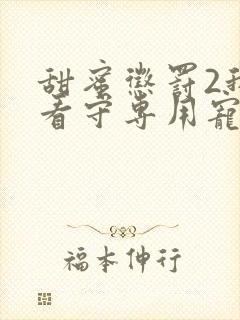 甜蜜懲罰2我
看守專用寵
福本伸行